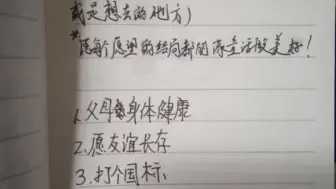 或是想去的地方)
*愿每个愿望的结局都如童话般美好!
1.父母身体健康
2.愿友谊长存
3.打个国标